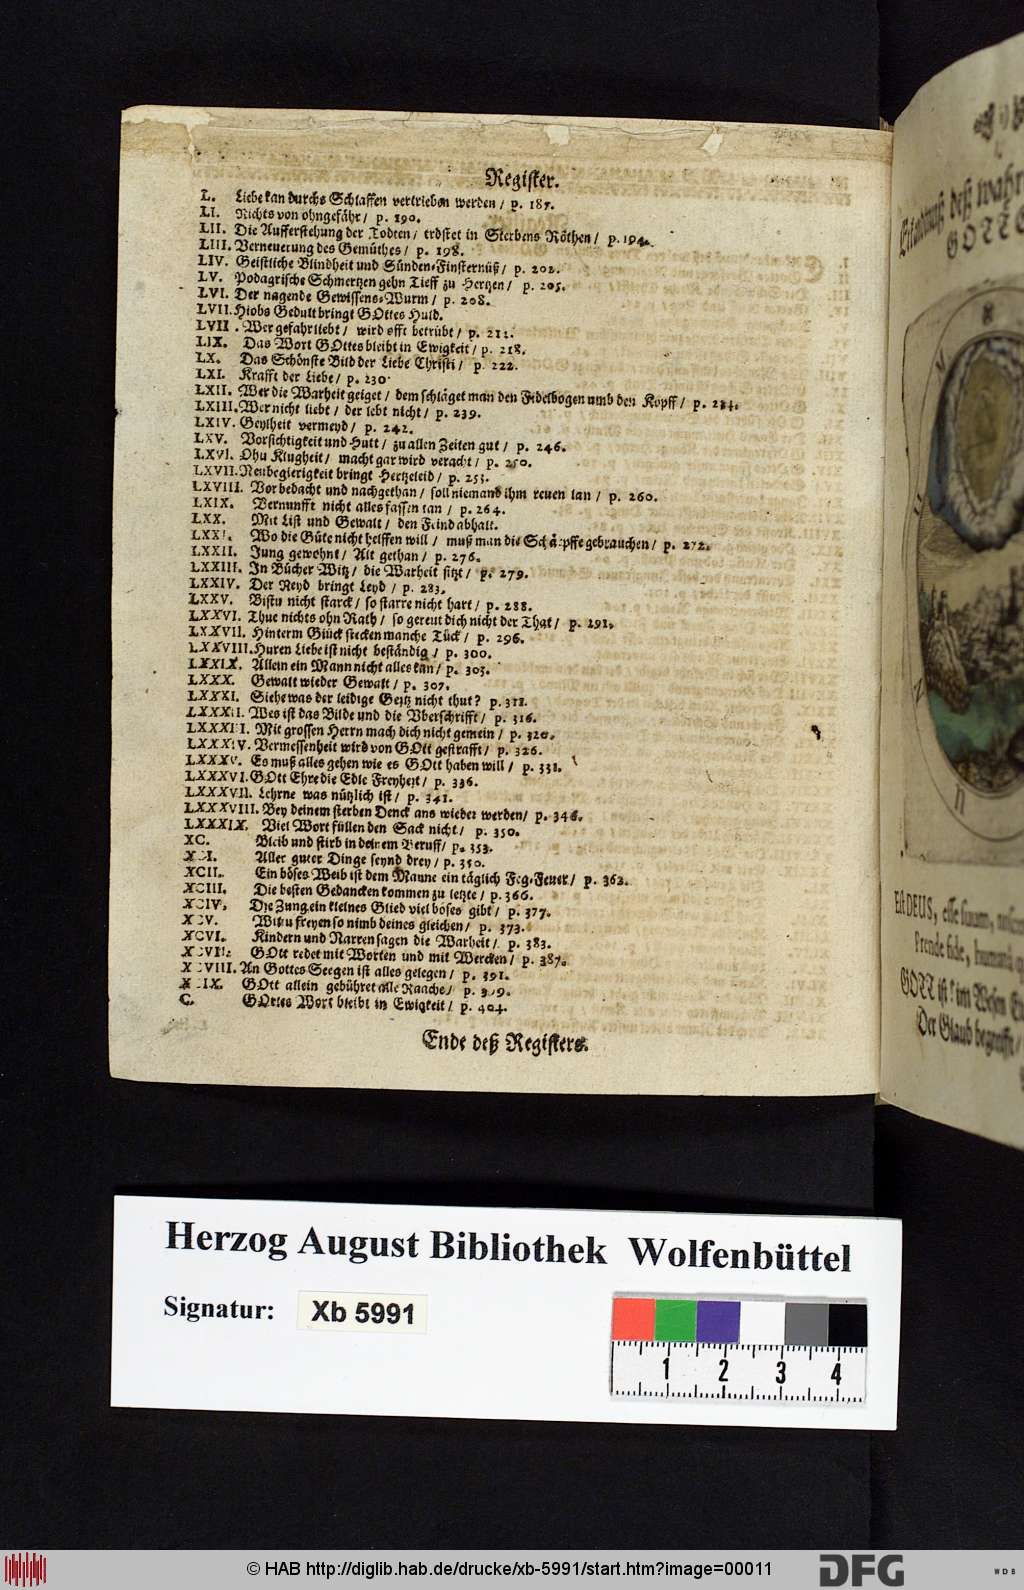 Register.
L. Liebe kan durchs Schlaffen vertrieben werden / p. 187.
LI. Nichts von ohngefähr / p. 190.
LII. Die Aufferstehung der Todten / tröstet in Sterbens Nöthen / p. 194.
LIII. Verneuerung des Gemüthes / p. 198.
LIV. Geistliche Blindheit und Sünden-Finsternüß / p. 202.
LV. Podagrische Schmertzen gehn Tieff zu Hertzen / p. 205.
LVI. Der nagende Gewissens-Wurm / p. 208.
LVII. Hiobs Gedult bringt GOttes Huld.
LVII . Wer gefahr liebt / wird offt betrübt / p. 211.
LIX. Das Wort GOttes bleibt in Ewigkeit / p. 218.
LX. Das Schönste Bild der Liebe Christi / p. 222.
LXI. Krafft der Liebe / p. 230.
LXII. Wer die Warheit geiget / dem schläget man den Fidelbogen umb den Kopff / p. 234.
LXIII. Wer nicht liebt / der lebt nicht / p. 239.
LXIV. Geylheit vermeyd / p. 242.
LXV. Vorsichtigkeit und Hutt / zu allen Zeiten gut / p. 246.
LXVI. Ohn Klugheit / macht gar wird veracht / p. 250.
LXVII. Neubegierigkeit bringt Hertzeleid / p. 253.
LXVIII. Vor bedacht und nachgethan / soll niemand ihm reuen lan / p. 260.
LXIX. Vernunfft nicht alles fassen kan / p. 264.
LXX. Mit List und Gewalt / den Feind abhalt.
LXXI. Wo die Güte nicht helffen will / muß man die Schärpffe gebrauchen / p. 272.
LXXII. Jung gewohnt / Alt gethan / p. 276.
LXXIII. In Bücher Witz / die Warheit sitzt / p. 279.
LXXIV. Der Neyd bringt Leyd / p. 283.
LXXV. Bistu nicht starck / so starre nicht hart / p. 288.
LXXVI. Thue nichts ohn Rath / so gereut dich nicht der That / p. 291.
LXXVII. Hinterm Glück stecken manche Tück / p. 296.
LXXVIII. Huren Liebe ist nicht beständig / p. 300.
LXXIX. Allein ein Mann nicht alles kan / p. 303.
LXXX. Gewalt wieder Gewalt / p. 307.
LXXXI. Siehe was der leidige Geitz nicht thut? p. 311.
LXXXII. Wes ist das Bilde und die Vberschrifft / p. 316.
LXXXIII. Mit grossen Herrn mach dich nicht gemein / p. 320.
LXXXIV. Vermessenheit wird von GOtt gestrafft / p. 326.
LXXXV. Es muß alles gehen wie es GOtt haben will / p. 331.
LXXXVI. GOtt Ehre die Edle Freyheit / p. 336.
LXXXVII. Lehrne was nützlich ist / p. 341.
LXXXVIII. Bey deinem sterben Denck ans wieder werden / p. 346.
LXXXIX. Viel Wort füllen den Sack nicht / p. 350.
XC. Bleib und stirb in deinem Beruff / p. 353.
XCI. Aller guter Dinge seynd drey / p. 350.
XCII. Ein böses Weib ist dem Manne ein täglich Feg-Feuer / p. 362.
XCIII. Die besten Gedancken kommen zu letzte / p. 366.
XCIV. Die Zung ein kleines Glied viel böses gibt / p. 377.
XCV. Wiltu freyen so nimb deines gleichen / p. 373.
XCVI. Kindern und Narren sagen die Warheit / p. 383.
XCVII. GOtt redet mit Worten und mit Wercken / p. 387.
XCVIII. An Gottes Seegen ist alles gelegen / p. 391.
XCIX. GOtt allein gebühret alle Raache / p. 399.
C. GOttes Wort bleibt in Ewigkeit / p. 404.
Ende deß Registers.
deß wahr
GOTTE
Est DEUS, esse suum,
Prende fide, humana
GOTT ist! im Wesen
Der Glaub begreifft /
Herzog August Bibliothek Wolfenbüttel
Signatur: Xb 5991
1 2 3 4
© HAB http://diglib.hab.de/drucke/xb-5991/start.htm?image=00011
DFG
WDB